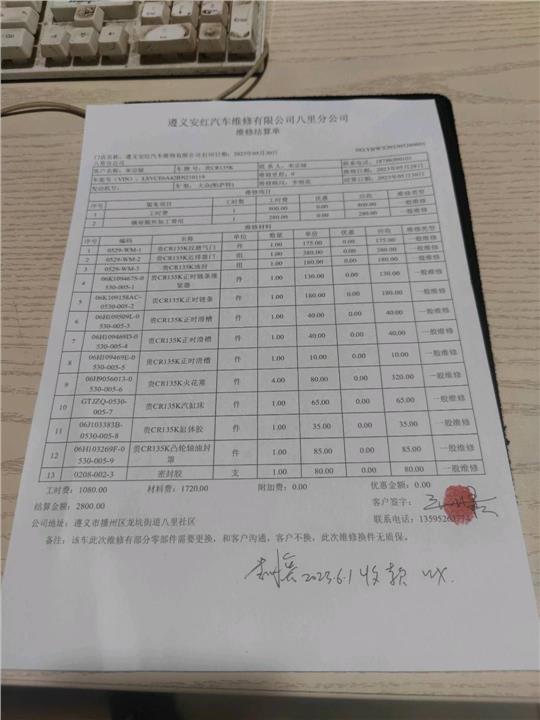 遵义安红汽车维修有限公司八里分公司
维修结算单
门店名称：遵义安红汽车维修有限公司 打印日期：2023年05月30日
八里分公司
车牌号：贵CR135K
车型：大众(帕萨特)
维修项目
序号 服务项目 工时数 工时费 优惠 应收 维修类型
1 工时费 1 800.00 0.00 800.00 一般维修
2 1 280.00 0.00 280.00 一般维修
维修材料
序号 编码 名称 单位 数量 单价 优惠 应收 维修类型
1 0529-WM-1 贵CR135K 气门 件 1.00 175.00 0.00 175.00 一般维修
2 0529-WM-2 贵CR135K 门 组 1.00 380.00 0.00 380.00 一般维修
3 0529-WM-3 贵CR135K油封 组 1.00 180.00 0.00 180.00 一般维修
4 06K109467S-0530-005-1 贵CR135K正时链条涨紧器 件 1.00 130.00 0.00 130.00 一般维修
5 06K109158AC-0530-005-2 贵CR135K正时链条 件 1.00 180.00 0.00 180.00 一般维修
6 06H109509L-0530-005-3 贵CR135K正时滑槽 件 1.00 40.00 0.00 40.00 一般维修
7 06H109469D-0530-005-4 贵CR135K正时滑槽 件 1.00 40.00 0.00 40.00 一般维修
8 06H109469E-0530-005-5 贵CR135K正时滑槽 件 1.00 10.00 0.00 10.00 一般维修
9 06H9056013-0530-005-6 贵CR135K火花塞 件 4.00 80.00 0.00 320.00 一般维修
10 GTJZQ-0530-005-7 贵CR135K汽缸床 件 1.00 65.00 0.00 65.00 一般维修
11 06J103383B-0530-005-8 贵CR135K缸体胶 件 1.00 35.00 0.00 35.00 一般维修
12 06H103269F-0530-005-9 贵CR135K凸轮轴油封器 件 1.00 85.00 0.00 85.00 一般维修
13 0208-002-3 密封胶 支 1.00 80.00 0.00 80.00 一般维修
工时费：1080.00 材料费：1720.00 附加费：0.00 优惠金额：0.00
结算金额：2800.00 客户签字：
公司地址：遵义市播州区龙坑街道八里社区 联系电话：
备注：该车此次维修有部分零部件需要更换，和客户沟通，客户不换，此次维修换件无质保。
2023.6.1 收款 WX.